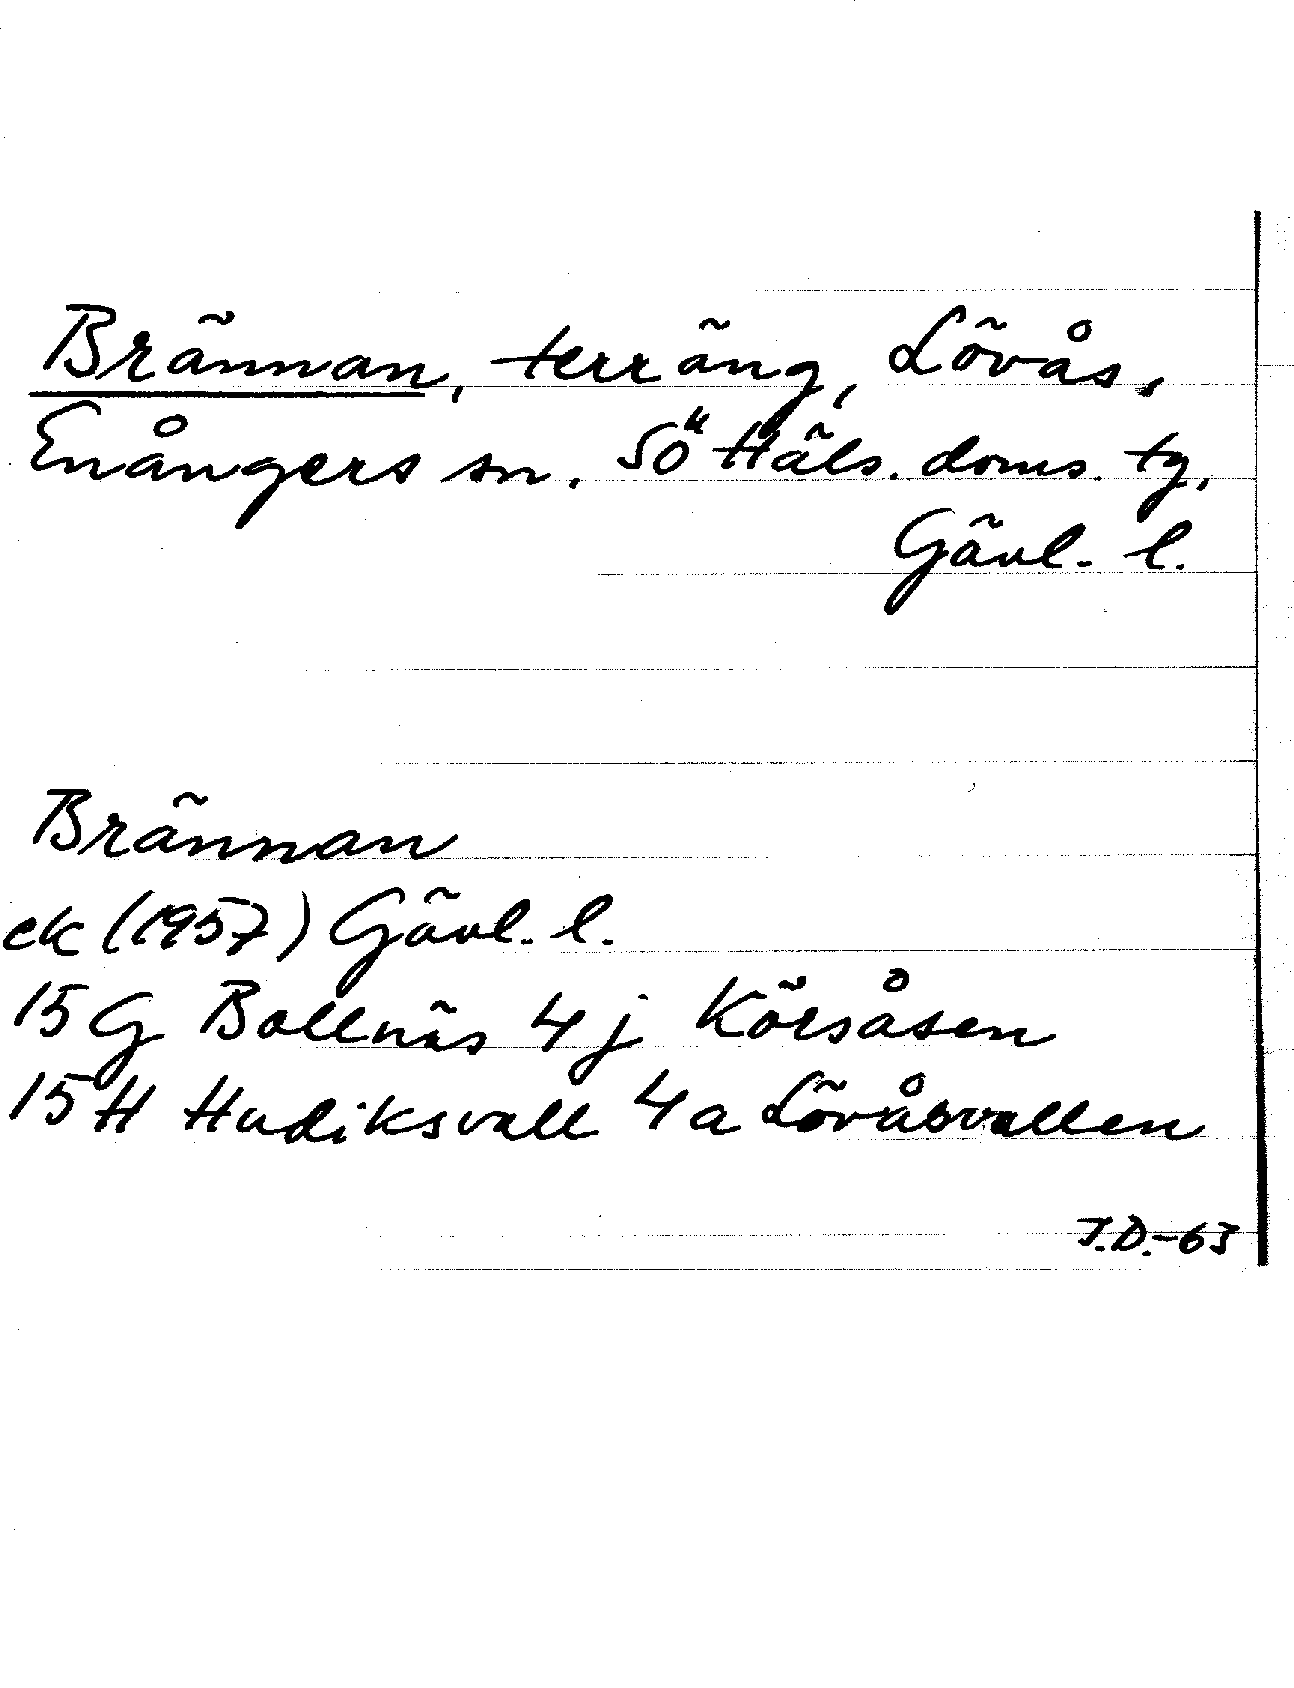 Brännan, terräng, Lövås,
Enångers sn. Sö Häls. doms. tg,
Gävl. l.
Brännan
ek (1957) Gävl. l.
15 G Bollnäs 4 j Körsåsen
15 H Hudiksvall 4 a Lövåsvallen
J.D.-63